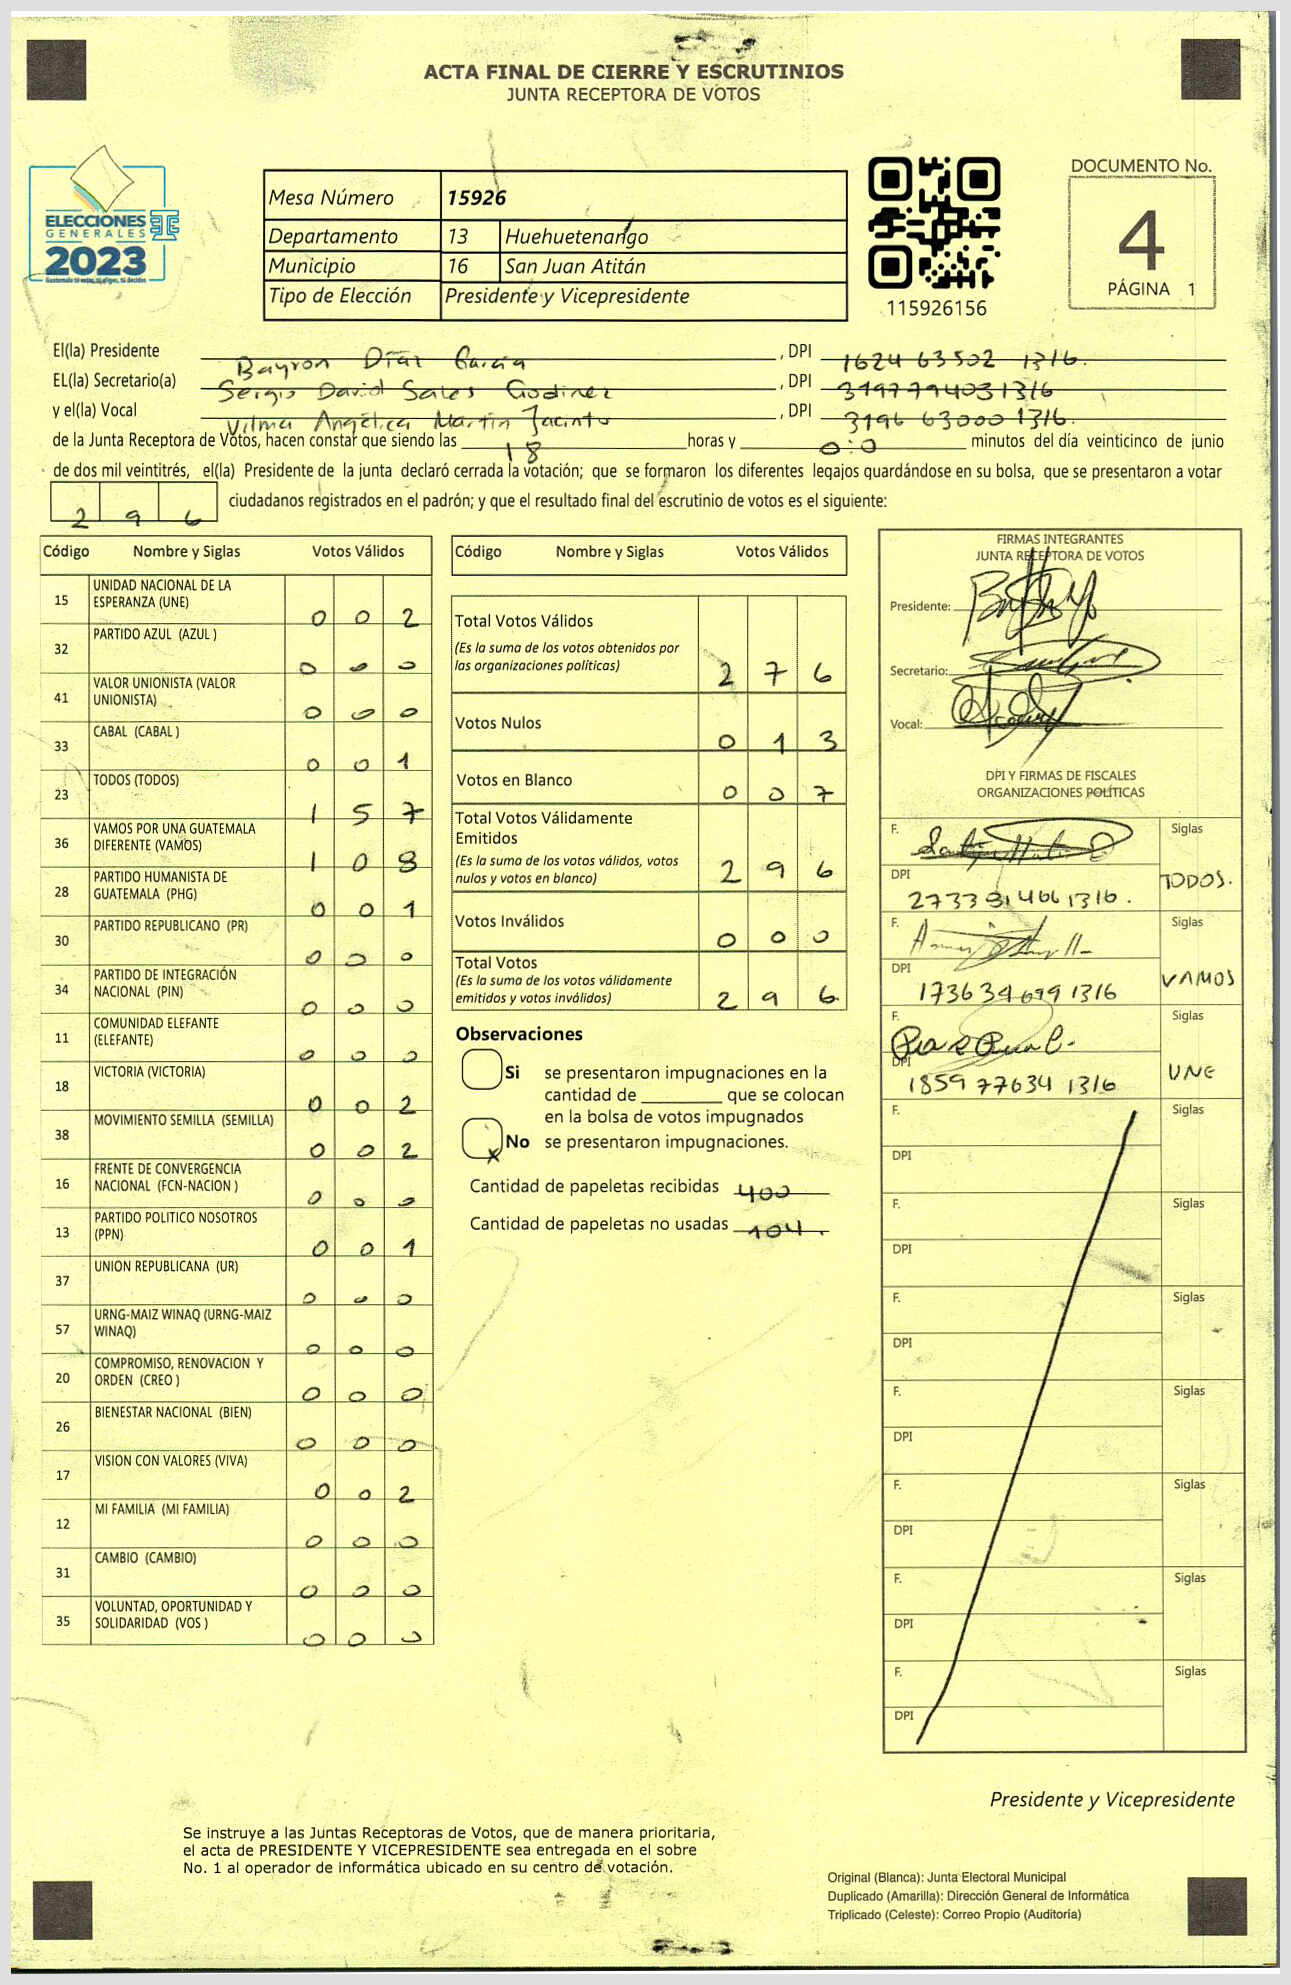 ACTA FINAL DE CIERRE Y ESCRUTINIOS
JUNTA RECEPTORA DE VOTOS
ELECCIONES
GENERALES
2023
Mesa Número 15926
Departamento 13 Huehuetenango
Municipio 16 San Juan Atitán
Tipo de Elección Presidente y Vicepresidente
115926156
DOCUMENTO No.
4
PÁGINA 1
El(la) Presidente Bayron Díaz García , DPI 1624 63502 1316.
EL(la) Secretario(a) Sergio David Sales Godinez , DPI 3197794031316
y el(la) Vocal Vilma Angélica Martín Jacinto , DPI 3196 63000 1316.
de la Junta Receptora de Votos, hacen constar que siendo las 18 horas y 0:0 minutos del día veinticinco de junio
de dos mil veintitrés, el(la) Presidente de la junta declaró cerrada la votación; que se formaron los diferentes legajos guardándose en su bolsa, que se presentaron a votar
2 9 6 ciudadanos registrados en el padrón; y que el resultado final del escrutinio de votos es el siguiente:
Código Nombre y Siglas Votos Válidos
15 UNIDAD NACIONAL DE LA
ESPERANZA (UNE) 0 0 2
32 PARTIDO AZUL (AZUL ) 0 0 0
41 VALOR UNIONISTA (VALOR
UNIONISTA) 0 0 0
33 CABAL (CABAL ) 0 0 1
23 TODOS (TODOS) 1 5 7
36 VAMOS POR UNA GUATEMALA
DIFERENTE (VAMOS) 1 0 8
28 PARTIDO HUMANISTA DE
GUATEMALA (PHG) 0 0 1
30 PARTIDO REPUBLICANO (PR) 0 0 0
34 PARTIDO DE INTEGRACIÓN
NACIONAL (PIN) 0 0 0
11 COMUNIDAD ELEFANTE
(ELEFANTE) 0 0 0
18 VICTORIA (VICTORIA) 0 0 2
38 MOVIMIENTO SEMILLA (SEMILLA) 0 0 2
16 FRENTE DE CONVERGENCIA
NACIONAL (FCN-NACION ) 0 0 0
13 PARTIDO POLITICO NOSOTROS
(PPN) 0 0 1
37 UNION REPUBLICANA (UR) 0 0 0
57 URNG-MAIZ WINAQ (URNG-MAIZ
WINAQ) 0 0 0
20 COMPROMISO, RENOVACION Y
ORDEN (CREO ) 0 0 0
26 BIENESTAR NACIONAL (BIEN) 0 0 0
17 VISION CON VALORES (VIVA) 0 0 2
12 MI FAMILIA (MI FAMILIA) 0 0 0
31 CAMBIO (CAMBIO) 0 0 0
35 VOLUNTAD, OPORTUNIDAD Y
SOLIDARIDAD (VOS ) 0 0 0
Código Nombre y Siglas Votos Válidos
Total Votos Válidos
(Es la suma de los votos obtenidos por
las organizaciones políticas) 2 7 6
Votos Nulos 0 1 3
Votos en Blanco 0 0 7
Total Votos Válidamente
Emitidos
(Es la suma de los votos válidos, votos
nulos y votos en blanco) 2 9 6
Votos Inválidos 0 0 0
Total Votos
(Es la suma de los votos válidamente
emitidos y votos inválidos) 2 9 6
Observaciones
Si se presentaron impugnaciones en la
cantidad de ________ que se colocan
en la bolsa de votos impugnados
x No se presentaron impugnaciones.
Cantidad de papeletas recibidas 400
Cantidad de papeletas no usadas 104.
FIRMAS INTEGRANTES
JUNTA RECEPTORA DE VOTOS
Presidente:
Secretario:
Vocal:
DPI Y FIRMAS DE FISCALES
ORGANIZACIONES POLÍTICAS
F. Siglas
DPI TODOS.
2733 91466 1316.
F. Siglas
DPI VAMOS
173634699 1316
F. Siglas
DPI UNE
1859 77634 1316
F. Siglas
DPI
F. Siglas
DPI
F. Siglas
DPI
F. Siglas
DPI
F. Siglas
DPI
F. Siglas
DPI
F. Siglas
DPI
Presidente y Vicepresidente
Se instruye a las Juntas Receptoras de Votos, que de manera prioritaria,
el acta de PRESIDENTE Y VICEPRESIDENTE sea entregada en el sobre
No. 1 al operador de informática ubicado en su centro de votación.
Original (Blanca): Junta Electoral Municipal
Duplicado (Amarilla): Dirección General de Informática
Triplicado (Celeste): Correo Propio (Auditoría)